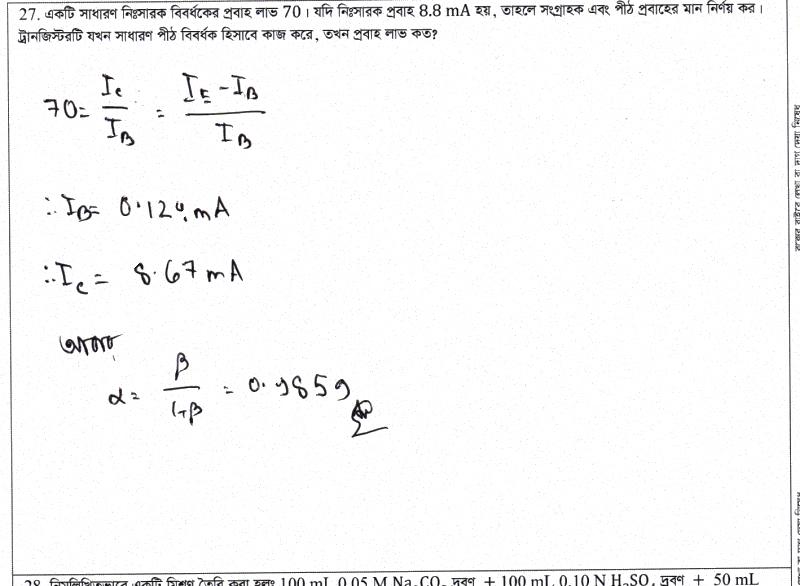 27. একটি সাধারণ নিঃসারক বিবর্ধকের প্রবাহ লাভ 70। যদি নিঃসারক প্রবাহ 8.8 mA হয়, তাহলে সংগ্রাহক এবং পীঠ প্রবাহের মান নির্ণয় কর।
ট্রানজিস্টরটি যখন সাধারণ পীঠ বিবর্ধক হিসাবে কাজ করে, তখন প্রবাহ লাভ কত?
70 = I_c / I_B = I_E - I_B / I_B
∴ I_B = 0.124 mA
∴ I_c = 8.67 mA
আবার,
α = β / 1+β = 0.9859
28. একটি মিশ্রণ তৈরি করা হলঃ 100 mL 0.05 M Na2CO3 দ্রবণ + 100 mL 0.10 N H2SO4 দ্রবণ + 50 mL